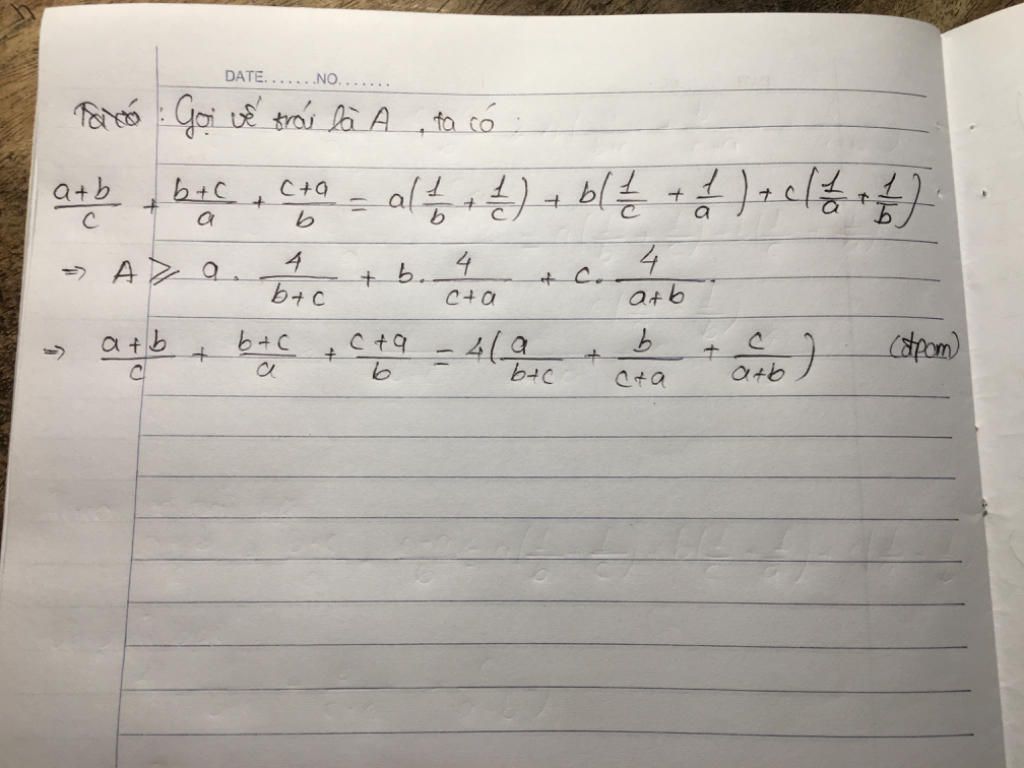 DATE.......NO.......
Ta có : Gọi vế trái là A , ta có :
\frac{a+b}{c} + \frac{b+c}{a} + \frac{c+a}{b} = a(\frac{1}{b} + \frac{1}{c}) + b(\frac{1}{c} + \frac{1}{a}) + c(\frac{1}{a} + \frac{1}{b})
=> A ⩾ a . \frac{4}{b+c} + b. \frac{4}{c+a} + c. \frac{4}{a+b}.
=> \frac{a+b}{c} + \frac{b+c}{a} + \frac{c+a}{b} = 4(\frac{a}{b+c} + \frac{b}{c+a} + \frac{c}{a+b}) (đpcm)